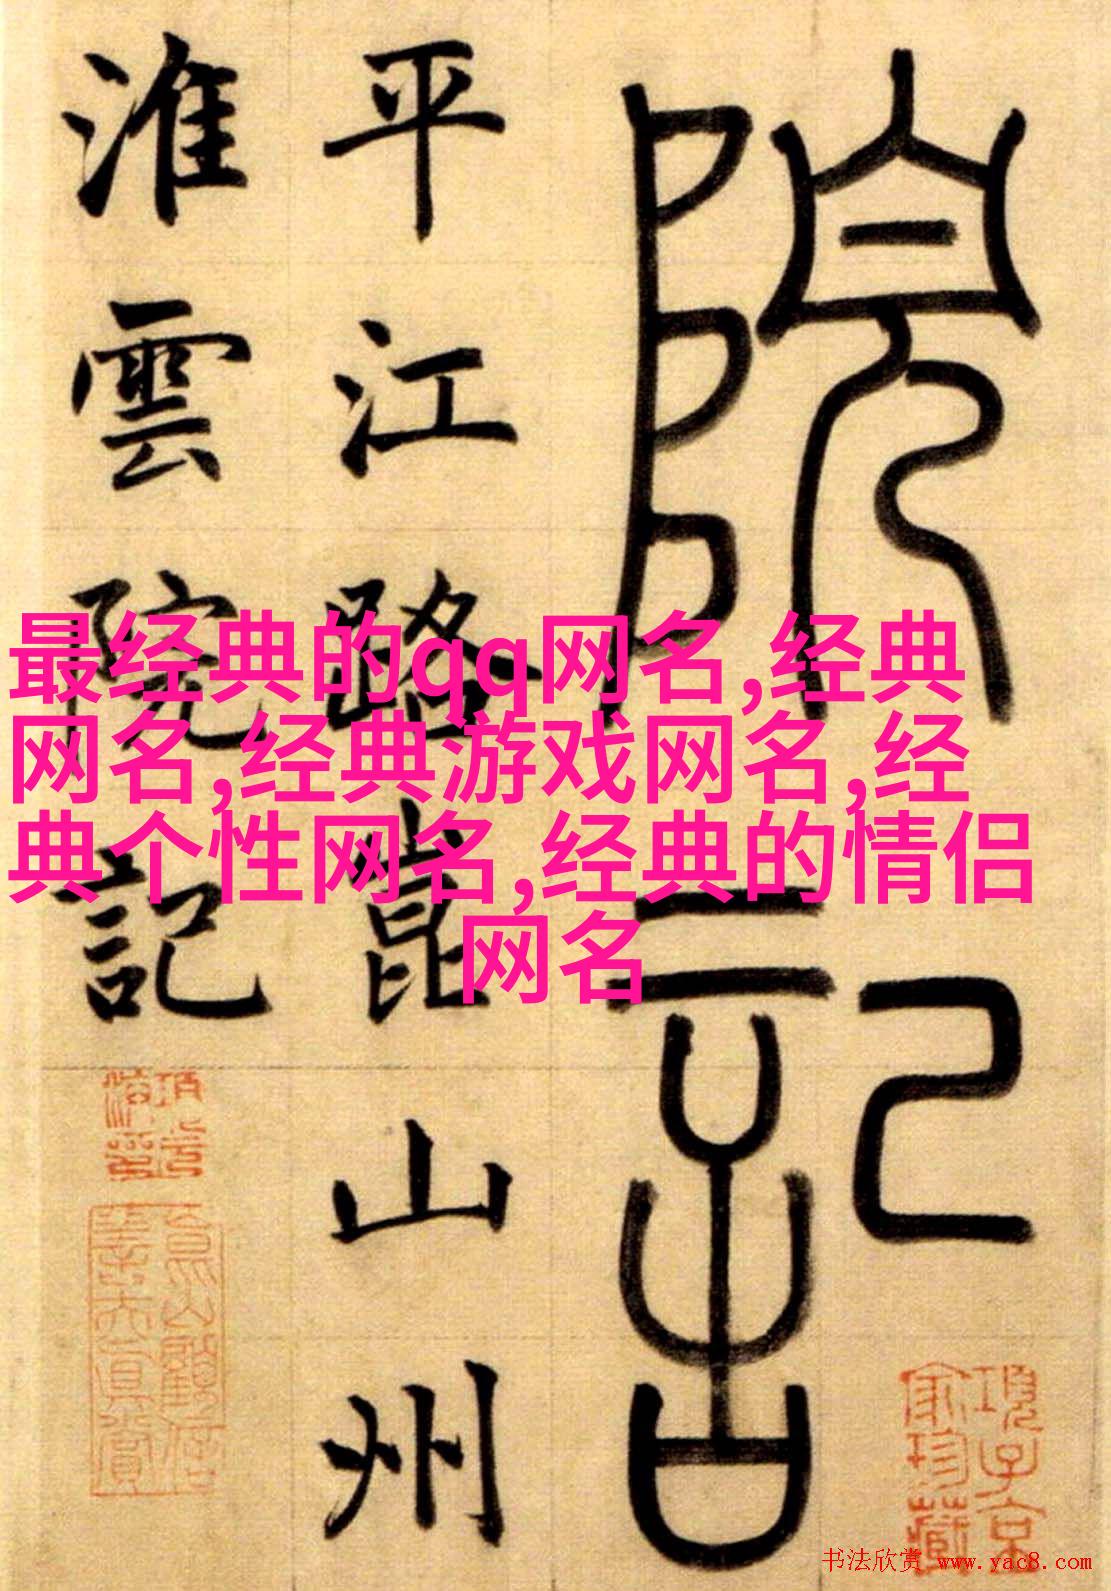 院記
平江路崑山州
淮雲院記
最经典的qq网名,经典
网名,经典游戏网名,经
典个性网名,经典的情侣
网名
项子京
家珍藏
书法欣赏 www.yac8.com